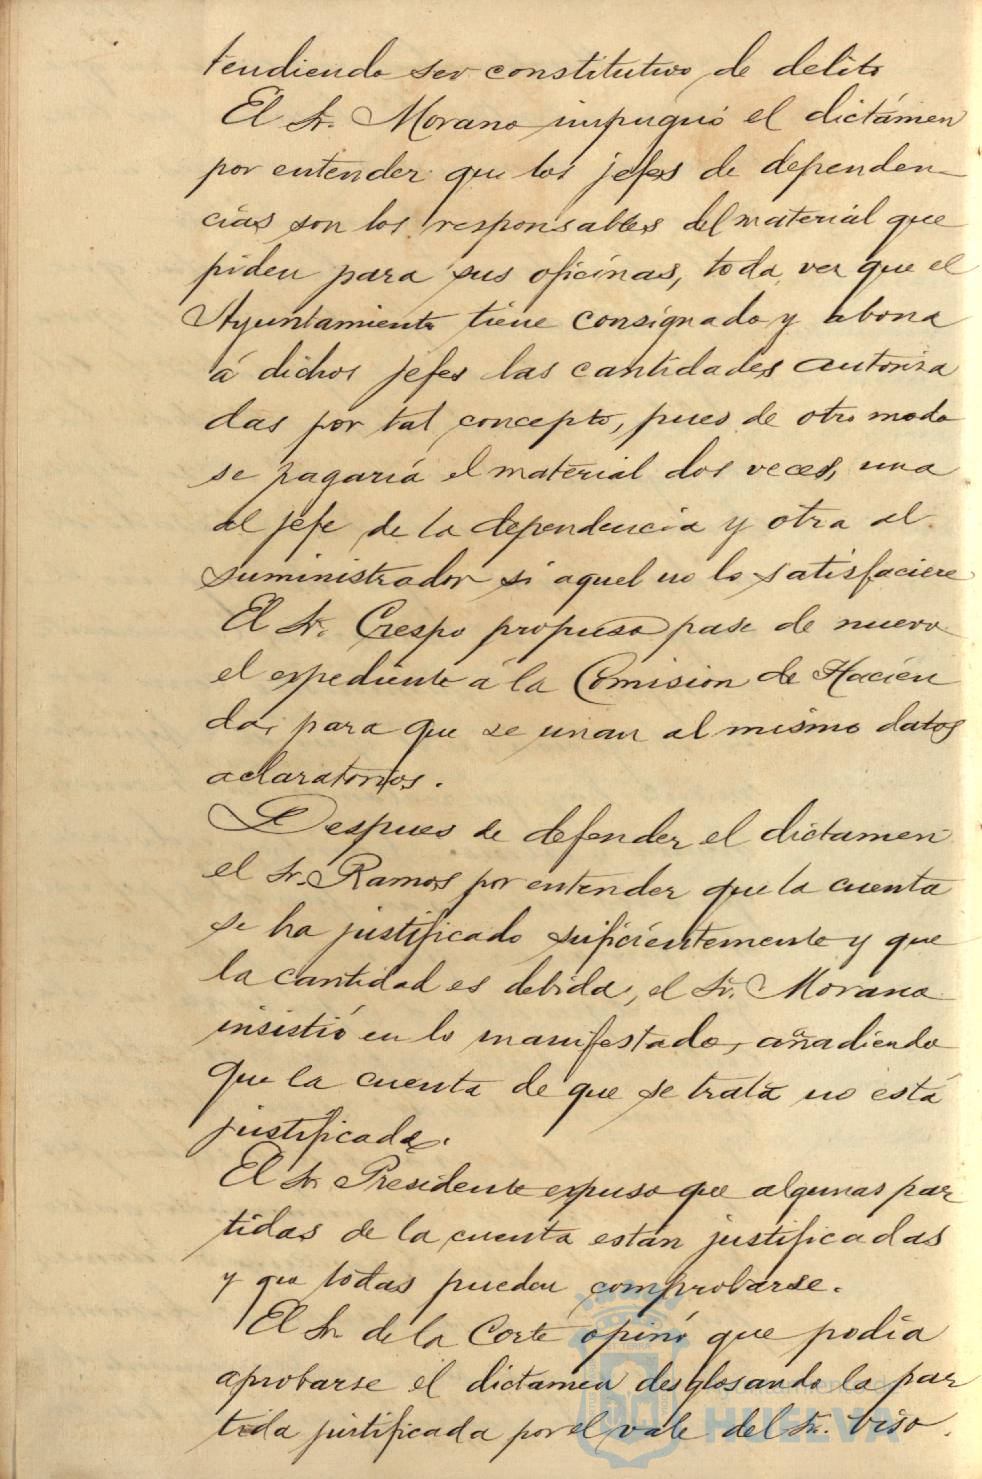 tendiendo ser constitutivo de delito
El Sr. Morano impugnó el dictámen
por entender que los jefes de dependen-
cias son los responsables del material que
piden para sus oficinas, toda vez que el
Ayuntamiento tiene consignado y abona
á dichos jefes las cantidades autoriza
das por tal concepto, pues de otro modo
se pagaría el material dos veces, una
al jefe de la dependencia y otra al
suministrador si aquel no lo satisfaciere
El Sr. Crespo propuso pase de nuevo
el expediente á la Comision de Hacien
da, para que se unan al mismo datos
aclaratorios.
Despues de defender el dictamen
el Sr. Ramos por entender que la cuenta
se ha justificado suficientemente y que
la cantidad es debida, el Sr. Morano
insistió en lo manifestado, añadiendo
que la cuenta de que se trata no está
justificada.
El Sr. Presidente expuso que algunas par
tidas de la cuenta están justificadas
y que todas pueden comprobarse.
El Sr. de la Corte opinó que podía
aprobarse el dictamen desglosando la par
tida justificada por el vale del Sr. Viso.
HUELVA